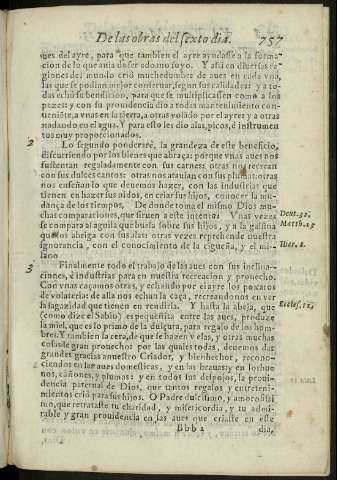 De las obras del sexto dia. 757
ues del ayre, para que tambien el ayre ayudasse a la forma-
cion de lo que auia de ser adorno suyo. Y assi en diuersas re-
giones del mundo criò muchedumbre de aues en cada vna,
las que se podian mejor conseruar, segun sus calidades: y a to-
das echò su bendicion, para que se multiplicassen como a los
pezes: y con su prouidencia dio a todas mantenimiento con-
ueniẽte, a vnas en la tierra, a otras volãdo por el ayre, y a otras
nadando en el agua. Y para esso les dio alas, picos, è instrumen
tos muy proporcionados.
2 Lo segundo ponderarè, la grandeza de este beneficio,
discurriendo por los bienes que abraça: porque vnas aues nos
sustentan regaladamente con sus carnes: otras nos recrean
con sus dulces cantos: otras nos atauian con sus plumas: otras
nos enseñan lo que deuemos hazer, con las industrias que
tienen en hazer sus nidos, en criar sus hijos, conocer la mu-
dança de los tiempos. De donde toma el mismo Dios mu-
chas comparationes, que siruen a este intento: Vnas vezes
Deut. 32.
se compara al aguila que buela sobre sus hijos, y a la gallina
Matth. 23
que los abriga con sus alas: otras vezes reprehende nuestra
ignorancia, con el conocimiento de la cigueña, y el mi-
Hier. 8.
lano
3 Finalmente todo el trabajo de las aues con sus inclina-
ciones, è industrias para en nuestra recreacion y prouecho.
Con vnas caçamos otras, y echando por el ayre los poxaros
de volateria: de alla nos echan la caça, recreandonos en ver
la sagazidad que tienen en rendirla. Y hasta la abeja, que
Eccles. 11,
(como dize el Sabio) es pequeñita entre las aues, produze
la miel, que es lo primo de la dulçura, para regalo de los hom-
bres. Y tambien la cera, de que se hazen velas, y otras muchas
cosas de gran prouecho: por las quales todas, deuemos dar
grandes gracias a nuestro Criador, y bienhechor, recono-
ciendo en las aues domesticas, y en las brauas, y en los hue-
uos, cañones, y plumas: y en todos sus despojos, la proui-
dencia paternal de Dios, que tantos regalos y entreteni-
mientos criò para sus hijos. O Padre dulcissimo, y amorosissi
mo, que retrataste tu charidad, y misericordia, y tu admi-
rable y gran prouidencia en las aues que criaste en este
Bbb 2 dia,